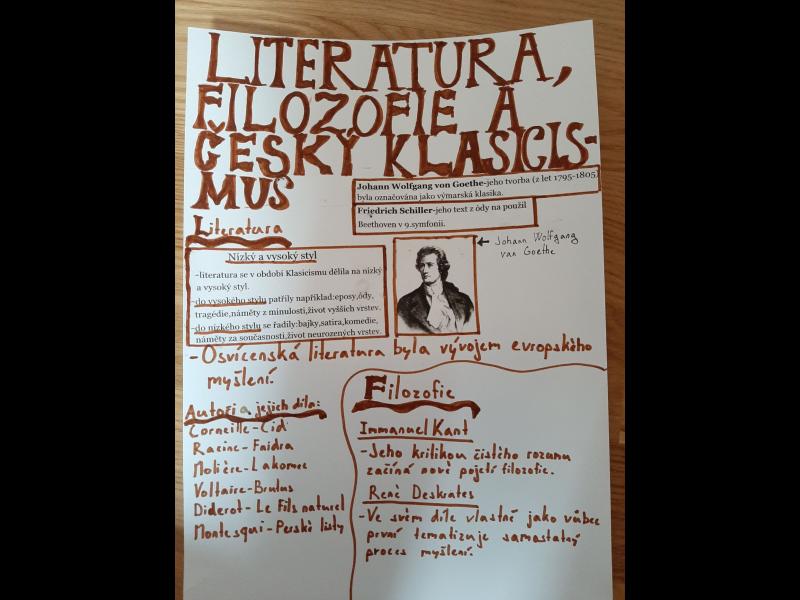 LITERATURA,
FILOZOFIE A
ČESKÝ KLASICIS-
MUS
Johann Wolfgang von Goethe-jeho tvorba (z let 1795-1805)
byla označována jako výmarská klasika.
Friedrich Schiller-jeho text z ódy na použil
Beethoven v 9.symfonii.
Literatura
Nízký a vysoký styl
-literatura se v období Klasicismu dělila na nízký
a vysoký styl.
-do vysokého stylu patřily například:eposy,ódy,
tragédie,náměty z minulosti,život vyšších vrstev.
-do nízkého stylu se řadily:bajky,satira,komedie,
náměty za současnosti,život neurozených vrstev.
Johann Wolfgang
van Goethe
-Osvícenská literatura byla vývojem evropského
myšlení.
Autoři a jejich díla:
Corneille-Cid
Racine-Faidra
Molière-Lakomec
Voltaire-Brutus
Diderot-Le Fils naturel
Montesqui-Perské listy
Filozofie
Immanuel Kant
-Jeho kritikou čistého rozumu
začíná nové pojetí filozofie.
Renè Deskrates
-Ve svém díle vlastně jako vůbec
první tematizuje samostatný
proces myšlení.